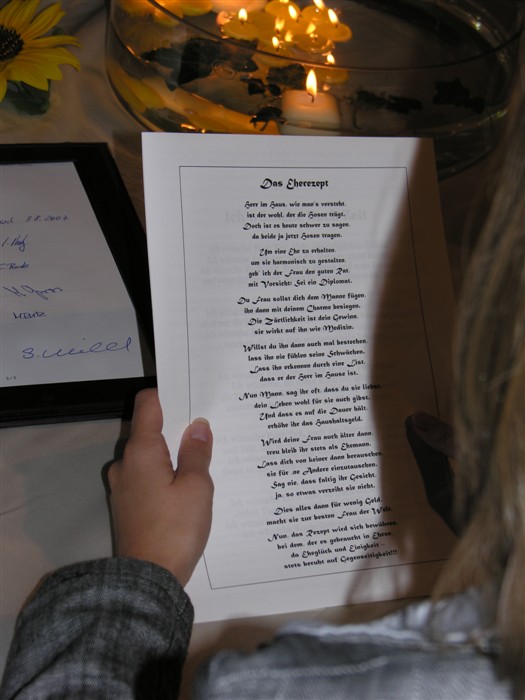 Das Eherezept
Herr im Haus, wie man's versteht,
ist der wohl, der die Hosen trägt.
Doch ist es heute schwer zu sagen,
da beide ja jetzt Hosen tragen.
Um eine Ehe zu erhalten,
um sie harmonisch zu gestalten,
geb' ich der Frau den guten Rat,
mit Vorsicht: Sei ein Diplomat.
Du Frau sollst dich dem Manne fügen,
ihn dann mit deinem Charme besiegen.
Die Zärtlichkeit ist dein Gewinn,
sie wirkt auf ihn wie Medizin.
Willst du ihn dann auch mal bestechen,
lass ihn nie fühlen seine Schwächen.
Lass ihn erkennen durch eine List,
dass er der Herr im Hause ist.
Nun Mann, sag ihr oft, dass du sie liebst,
dein Leben wohl für sie auch gibst.
Und dass es auf die Dauer hält,
erhöhe ihr das Haushaltsgeld.
Wird deine Frau auch älter dann,
treu bleib ihr stets als Ehemann.
Lass dich von keiner dann berauschen,
sie für 'ne Andere einzutauschen.
Sag nie, dass faltig ihr Gesicht,
ja, so etwas verzeiht sie nicht.
Dies alles dann für wenig Geld,
macht sie zur besten Frau der Welt.
Nun, das Rezept wird sich bewähren,
bei dem, der es gebraucht in Ehren,
da Eheglück und Einigkeit -
stets beruht auf Gegenseitigkeit!!!